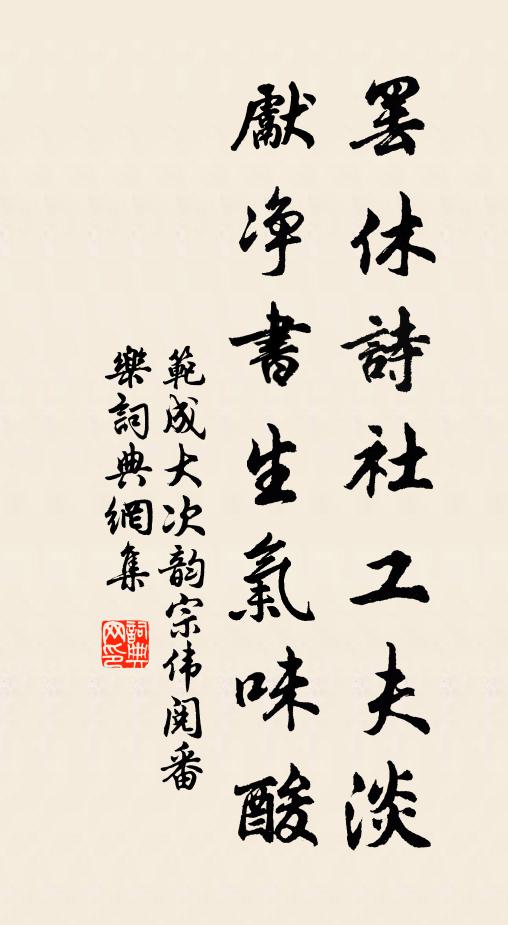 罢休詩社工夫淡
獻净書生氣味酸
範成大次韵宗伟阅番
樂詞典網集
詞典网印